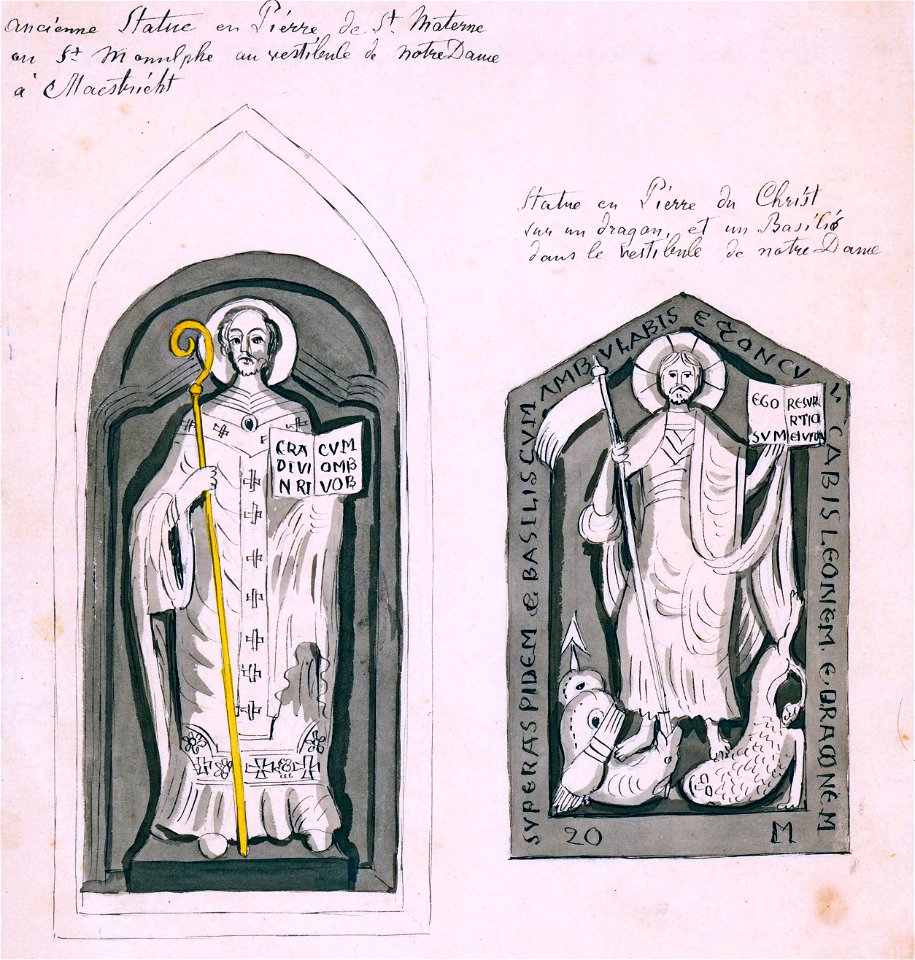 ancienne Statue en Pierre de St Materne
ou St Monulphe au vestibule de notre Dame
à Maestricht
Statue en Pierre du Christ
sur un dragon, et un Basilic
dans le vestibule de notre Dame
CRA CVM
DIVI OMB
NRI VOB
SVPER ASPIDEM & BASILISCVM
AMBVLABIS E CONCVL
CABIS LEONEM. E. DRACONEM
EGO RESVR
RTIO
SVM EIVITA
20 M